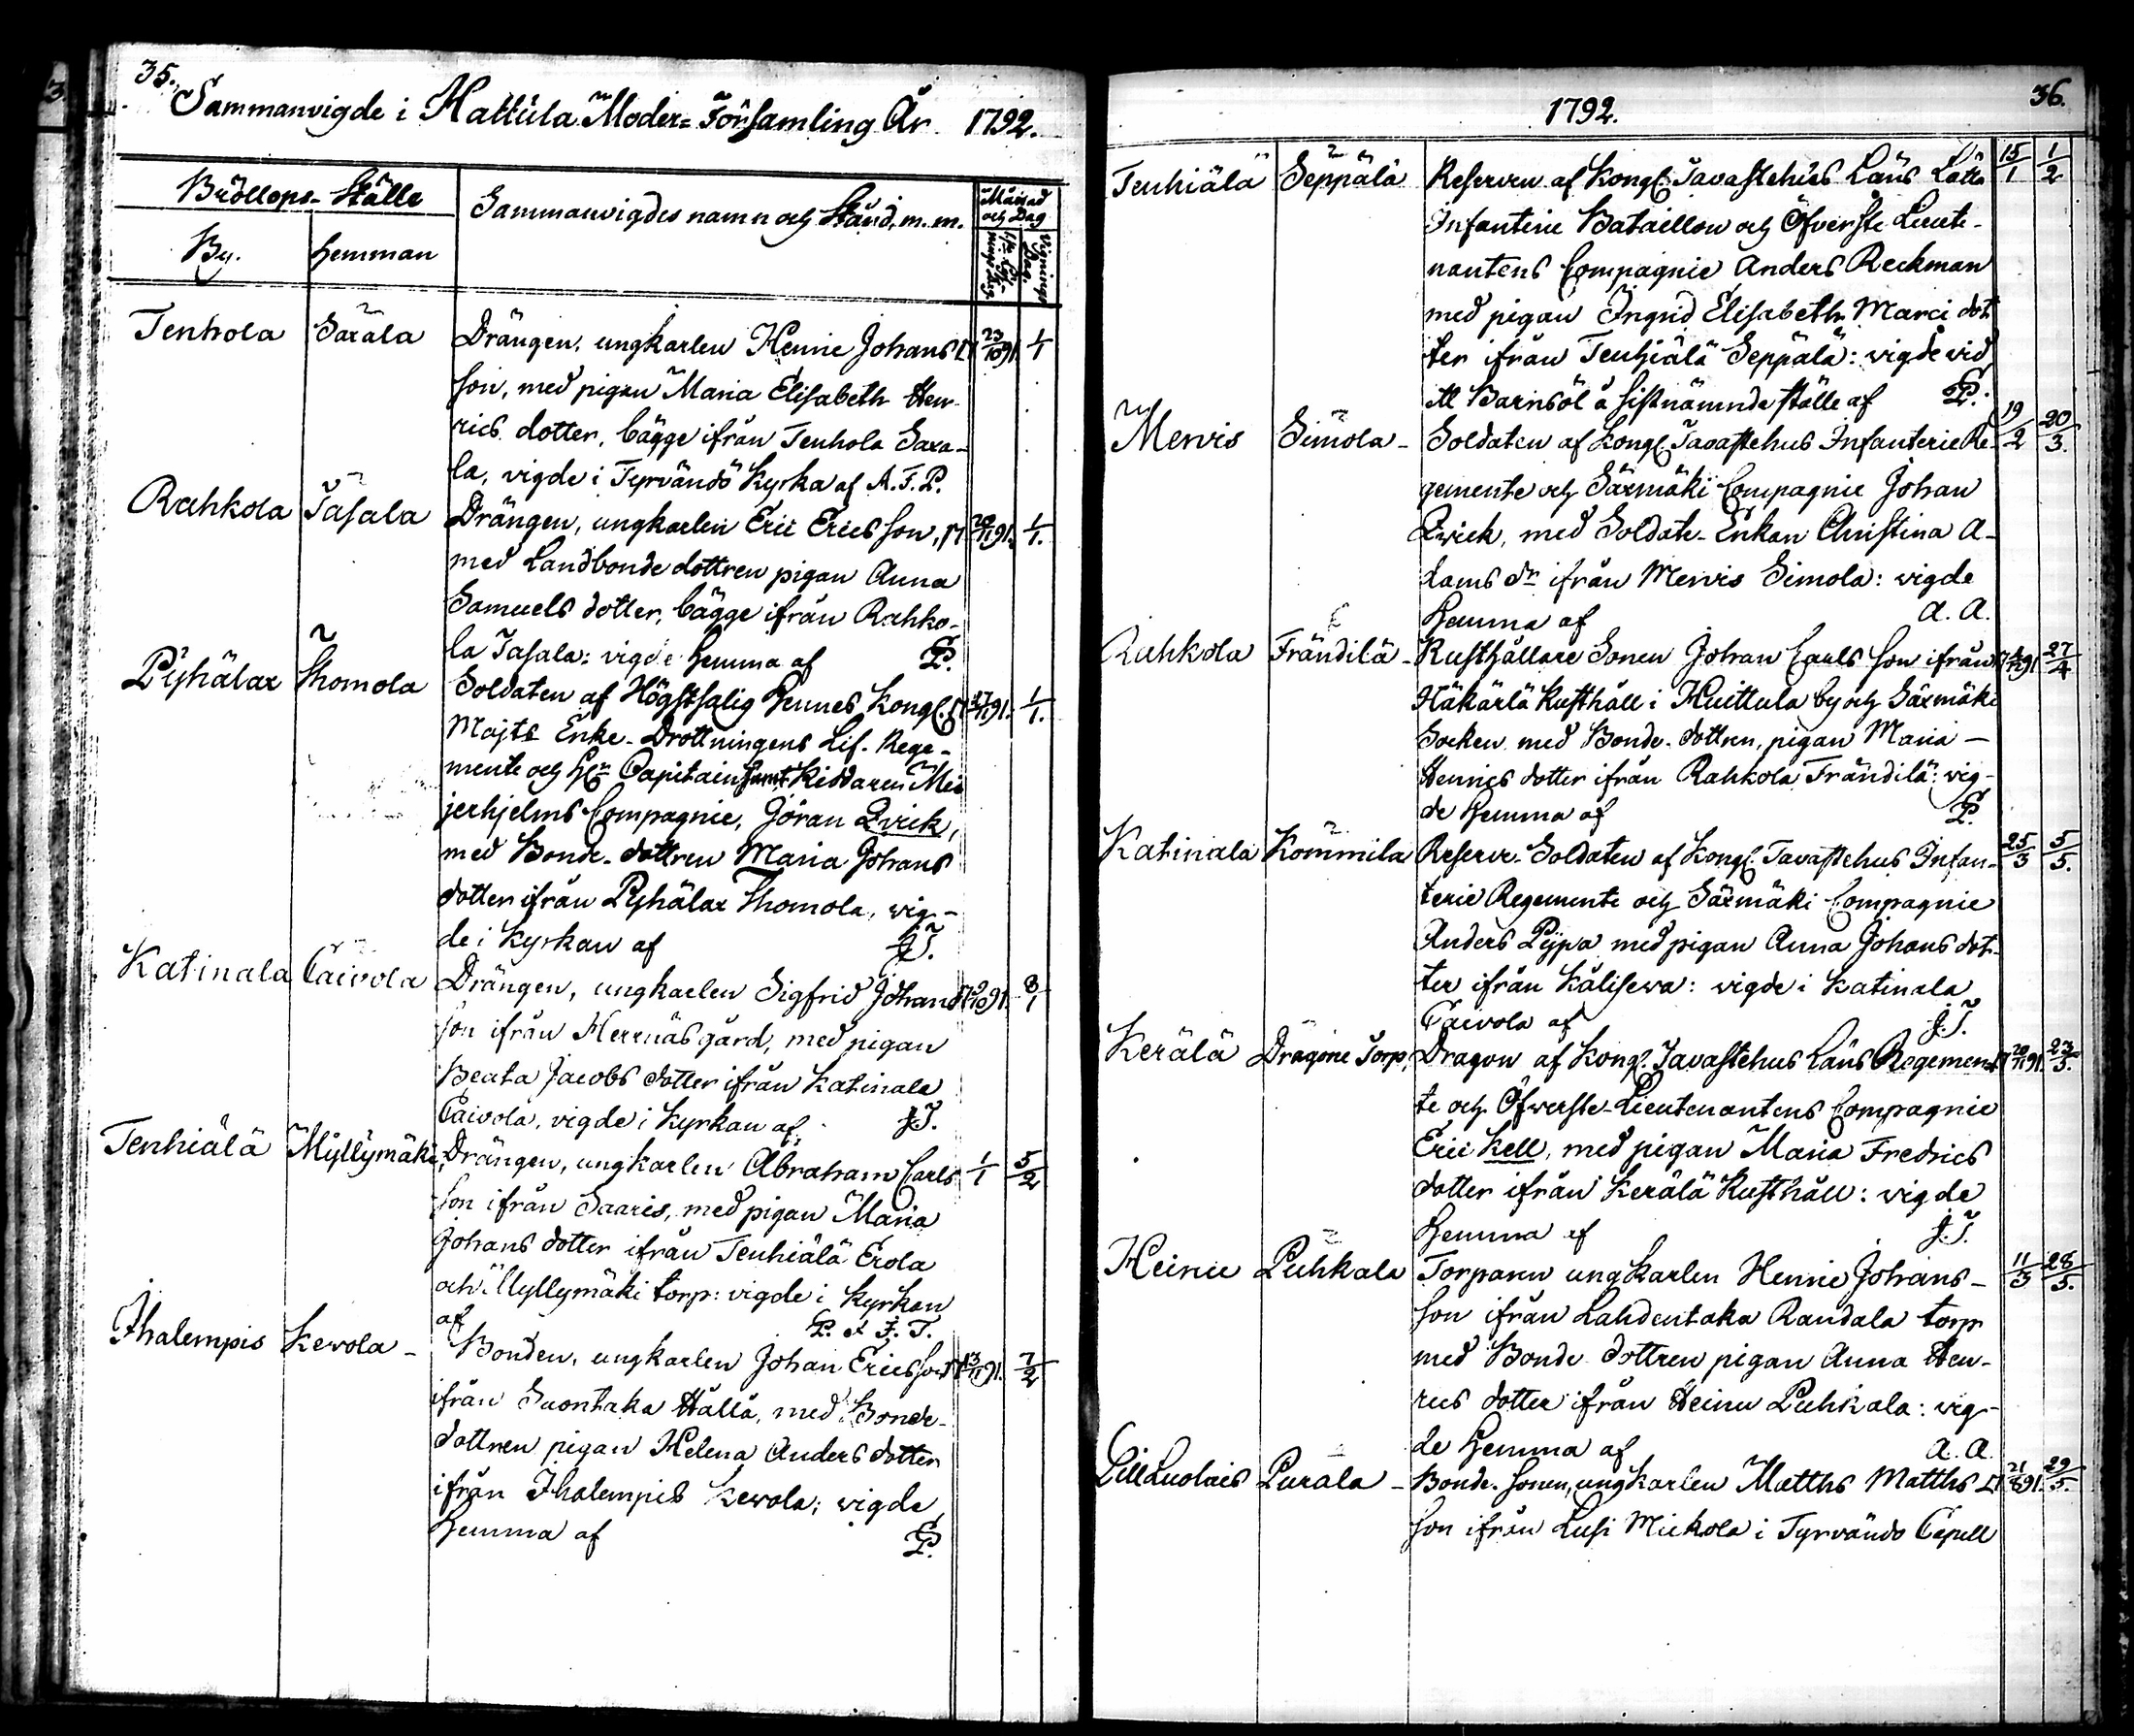 35.
Sammanvigde i Hattula Moder=Församling År 1792.
Bröllops-Ställe
Sammanvigdes namn och Stånd, m.m.
Månad och Dag
By.
Hemman
Lysnings Dag.
Vignings Dag.
Tenhola Saxala Drängen, ungkarlen Henric Johans 17 23/10 91. 1/1
son, med pigan Maria Elisabeth Hen-
rics dotter, bägge ifrån Tenhola Saxa-
la, vigde i Tyrvändö Kyrka af A.F.P.
Rahkola Jasala Drängen, ungkarlen Eric Ericsson, 17 91. 1/1.
med Landbonde dottren pigan Anna
Samuels dotter, bägge ifrån Rahko-
la Jasala: vigde hemma af P.
Pyhälax Thomola Soldaten af Högstsalig Hennes Kongl. 17 91. 1/1.
Majts Enke-Drottningens Lif-Rege-
mente och Hr Capitain samt Riddaren Mei
jerhjelms Compagnie, Göran Qvick,
med Bonde-dottren Maria Johans
dotter ifrån Pyhälax Thomola, vig-
de i Kyrkan af J.T.
Katinala Caivola Drängen, ungkarlen Sigfrid Johans 17 91. 8/1
son ifrån Herrnäs gård, med pigan
Beata Jacobs dotter ifrån Katinala
Caivola, vigde i Kyrkan af J.T.
Tenhiälä Myllymäki, Drängen, ungkarlen Abraham Carls 1/1 5/2
son ifrån Saaris, med pigan Maria
Johans dotter ifrån Tenhiälä Erola
och Myllymäki torp: vigde i Kyrkan
af P. J.T.
Ihalempis Kewola - Bonden, ungkarlen Johan Ericsson 17 13/11 91. 7/2
ifrån Suontaka Hållå, med Bonde-
dottren pigan Helena Anders dotter
ifrån Ihalempis Kewola; vigde
hemma af P.
1792.
36.
Tenhiälä Seppälä Reserven af Kongl. Tavastehus Läns Lätta 15/1 1/2
Infanterie Bataillon och Öfverste Lieute-
nantens Compagnie Anders Reckman
med pigan Ingrid Elisabeth Marci dot
ter ifrån Tenhiälä Seppälä: vigde vid
et Barnsöl å sistnämnde ställe af P.
Mervis Simola - Soldaten af Kongl. Tavastehus Infanterie Re- 19/2 20/3.
gemente och Säxmäki Compagnie Johan
Qvick, med Soldate-Enkan Christina A-
dams dr ifrån Mervis Simola: vigde
hemma af A.A.
Rahkola Frändilä - Rusthållare Sonen Johan Carls son ifrån 17 91 27/4
Häkärlä Rusthåll i Huittula by och Säxmäki
Socken med Bonde-dottren, pigan Maria -
Henrics dotter ifrån Rahkola Frändilä: vig-
de hemma af P.
Katinala Kömmilä Reserve-Soldaten af Kongl. Tavastehus Infan- 25/3 5/5.
terie Regemente och Säxmäki Compagnie
Anders Pijpa med pigan Anna Johans dot-
ter ifrån Kälisewa: vigde i Katinala
Caivola af J.T.
Kerälä Dragone Torp, Dragon af Kongl. Tavastehus Läns Regemen- 17 20/11 91 23/5.
te och Öfwerste-Lieutenantens Compagnie
Eric Kell, med pigan Maria Fredrics
dotter ifrån Kerälä Rusthåll: vigde
hemma af J.T.
Heinu Puhkala Torparen ungkarlen Henric Johans- 11/3 28/5.
son ifrån Lahdentaka Randala torp
med Bonde dottren pigan Anna Hen-
rics dotter ifrån Heinu Puhkala: vig-
de hemma af A.A.
Lill Luolais Purala - Bonde-sonen, ungkarlen Matths Matths 17 91. 29/5.
son ifrån Lusi Mickola i Tyrvändö Capell